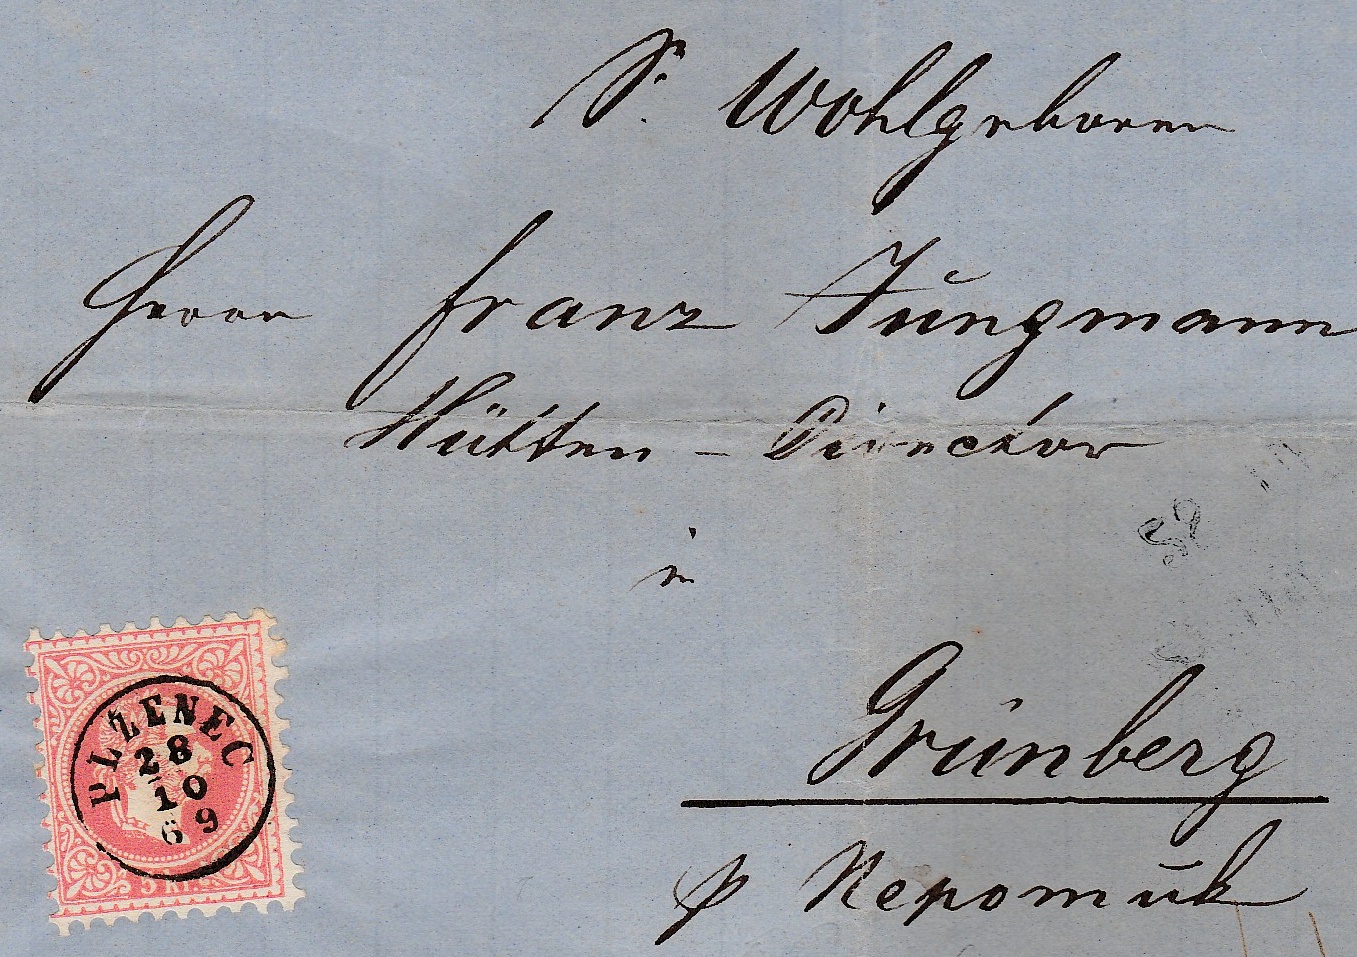 Sr. Wohlgeboren
Herrn Franz Jungmann
Hütten – Director
in
Grünberg
p Nepomuk
PLZENEC
28
10
69
5 KR.